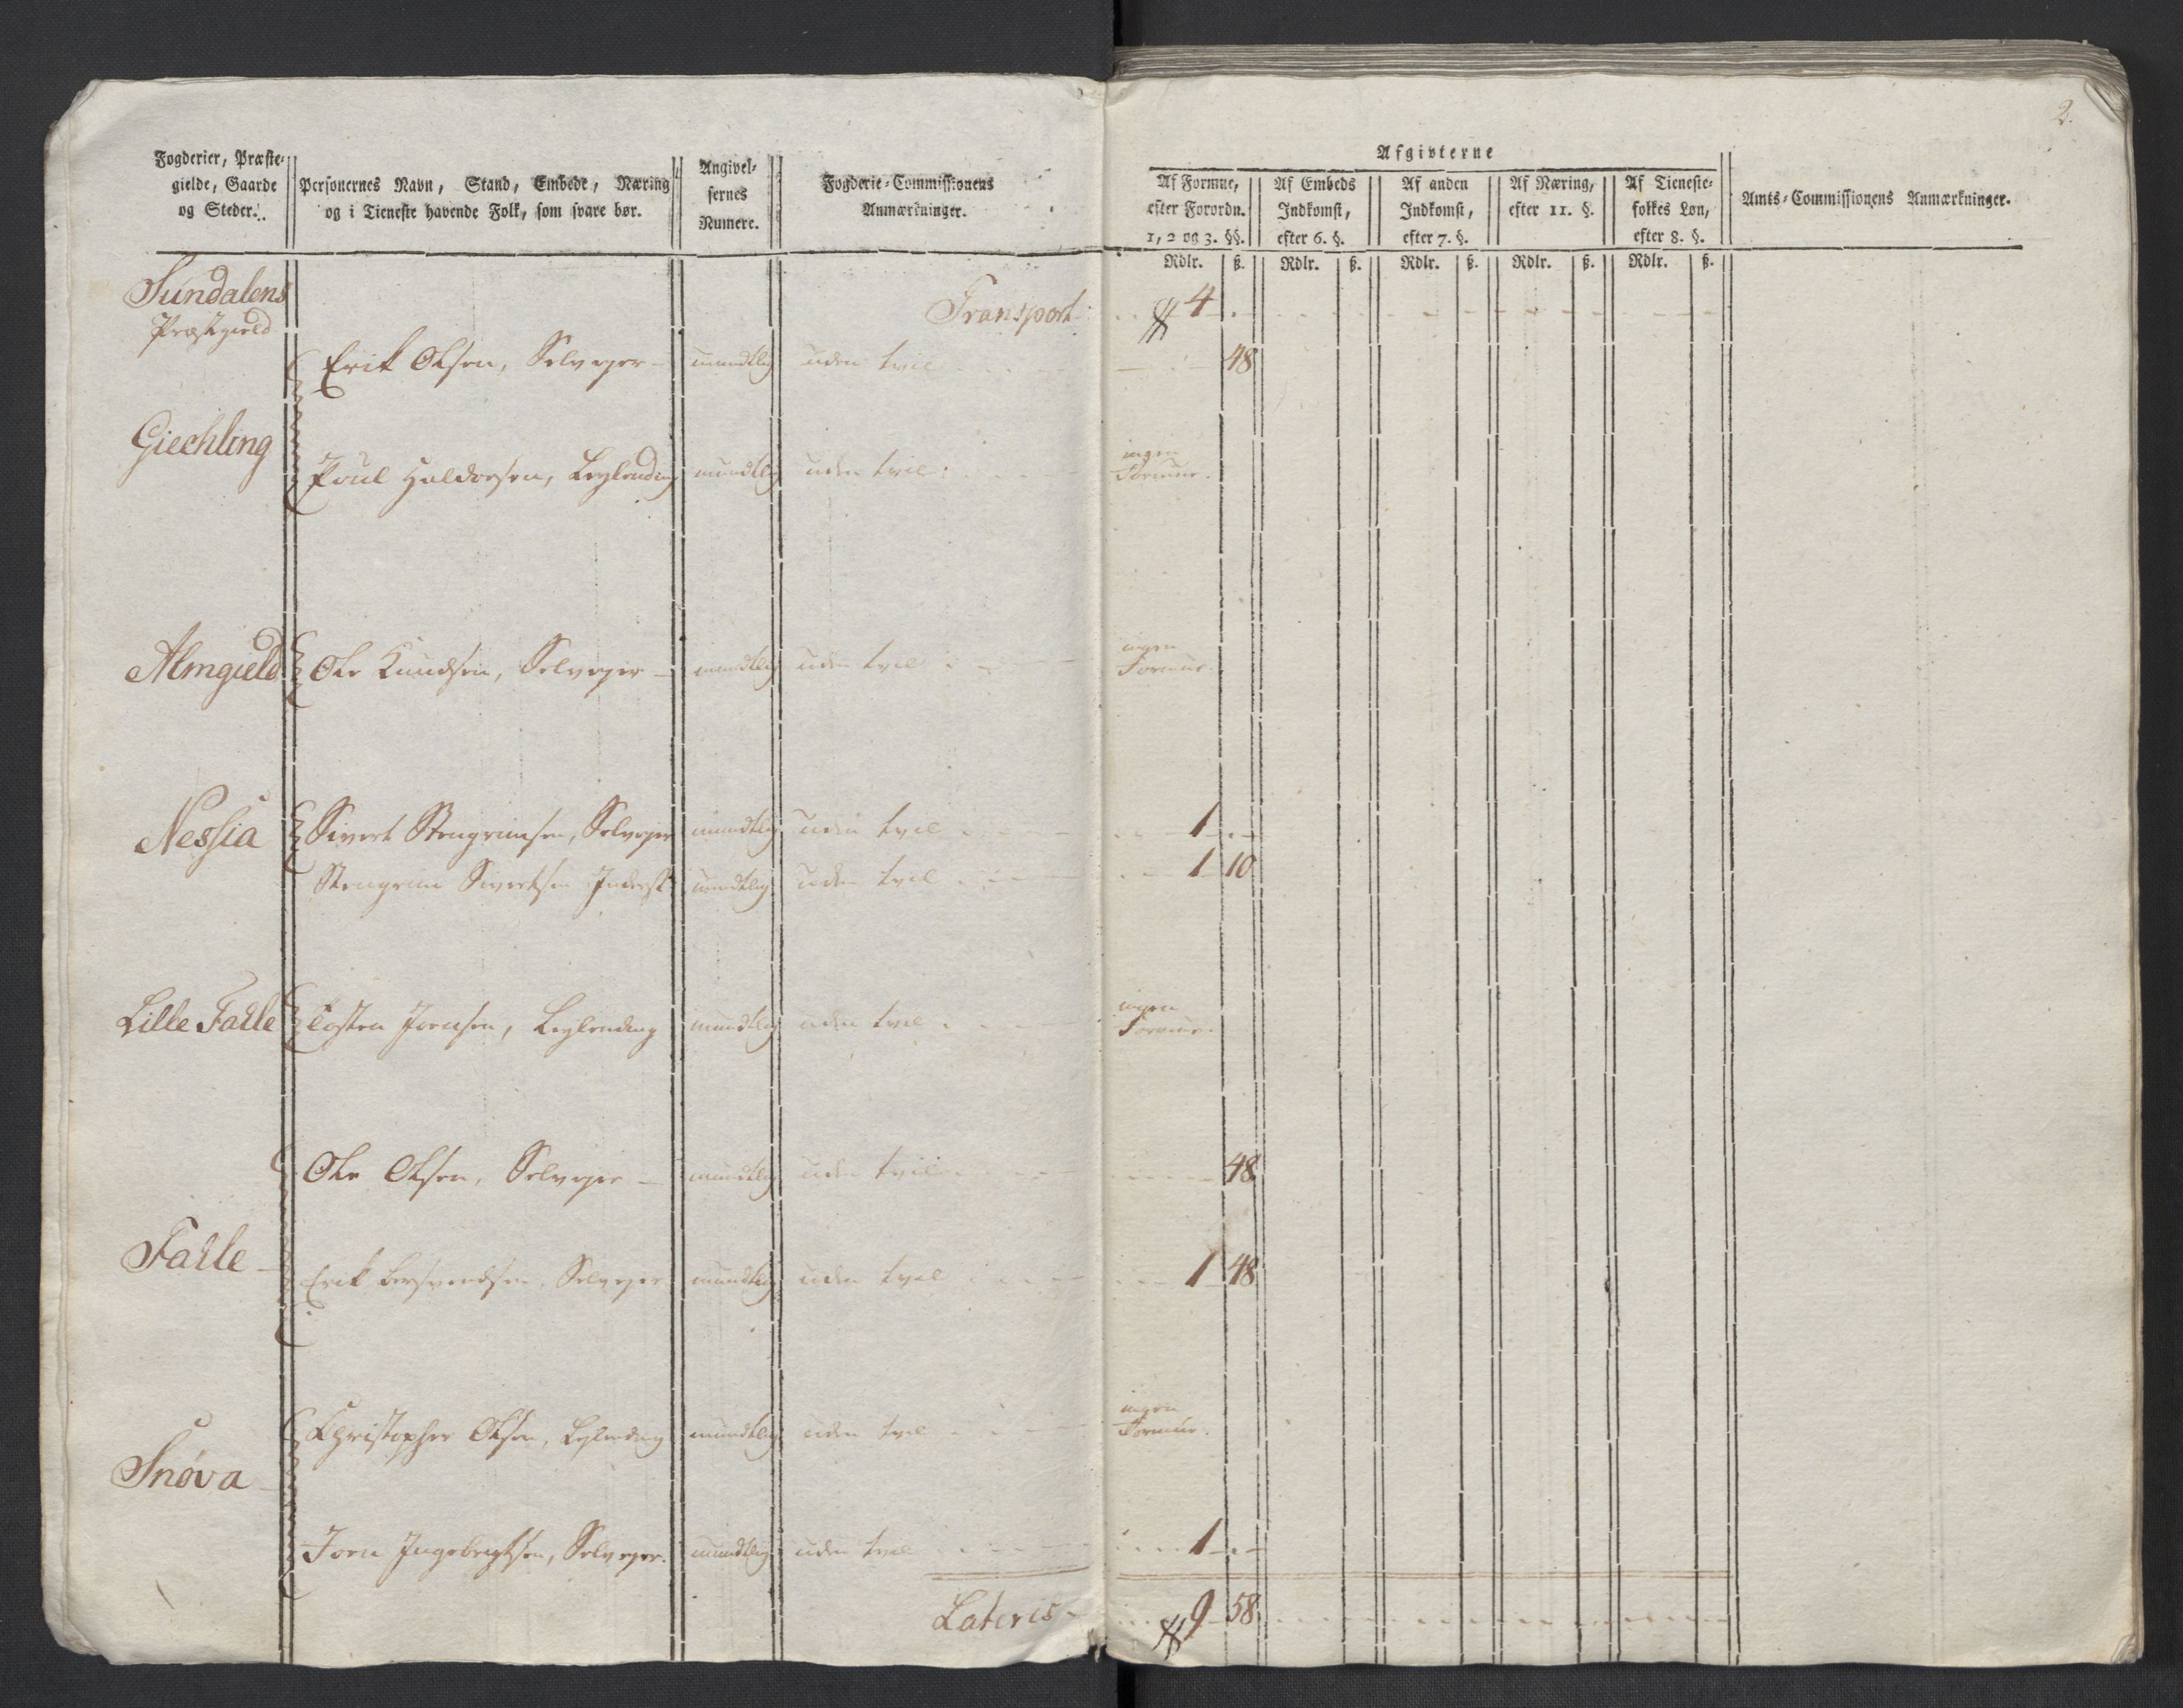 2.
Fogderier, Præste-
gielde, Gaarde
og Steder.
Personernes Navn, Stand, Embede, Næring
og i Tieneste havende Folk, som svare bør.
Angivel-
sernes
Numere.
Fogderie-Commissionens
Anmærkninger.
Afgivterne
Af Formue,
efter Forordn.
1, 2 og 3. §§.
Af Embeds
Indkomst,
efter 6. §.
Af anden
Indkomst,
efter 7. §.
Af Næring,
efter 11. §.
Af Tieneste-
folkes Løn,
efter 8. §.
Amts-Commissionens Anmærkninger.
Rdlr. ß. Rdlr. ß. Rdlr. ß. Rdlr. ß. Rdlr. ß.
Sundalens
Præstgield
Transport 4 . -
Erik Olsen, Selveyer - mundtlig uden tvil 48
Giechling
Poul Haldorsen, Leylending mundtlig uden tvil ingen
Formue.
Almgield Ole Knudsen, Selveyer - mundtlig uden tvil ingen
Formue.
Nessia Sivert Stengrimsen, Selveyer mundtlig uden tvil 1 . -
Stengrim Sivertsen Inderst mundtlig uden tvil 1 10
Lille Falle Tosten Joensen, Leylending mundtlig uden tvil ingen
Formue.
Ole Olsen, Selveyer - mundtlig uden tvil 48
Falle -
Erik Bersvendsen Selveyer mundtlig uden tvil 1 48
Christopher Olsen, Leylending mundtlig uden tvil ingen
Formue.
Snøva -
Joen Ingebrigtsen, Selveyer. mundtlig uden tvil 1 . -
Lateris - 9 58